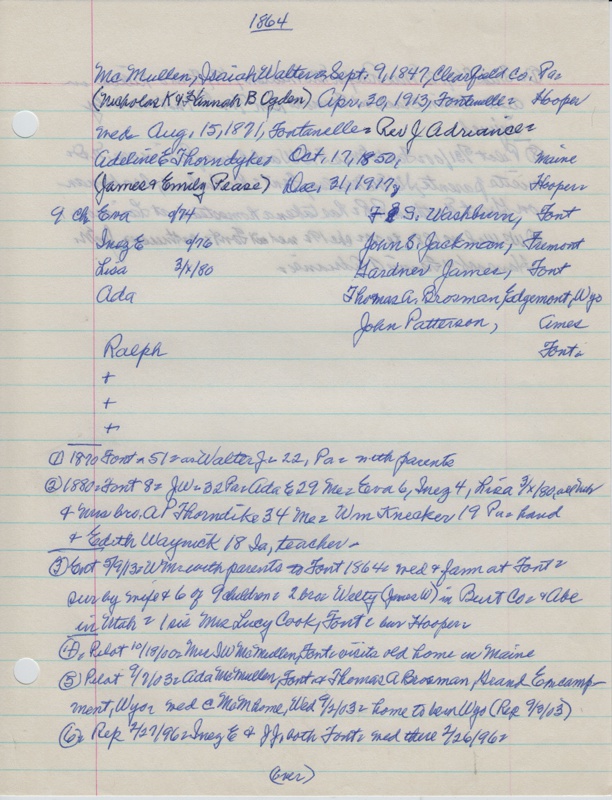 1864
McMullen, Isaiah Walter= Sept. 9, 1847, Clearfield Co. Pa=
(Nicholas K & Hannah B Ogden) Apr. 30, 1913, Fontanelle= Hooper
wed= Aug. 15, 1871, Fontanelle= Rev J. Adriance=
Adeline E Thorndyke= Oct. 17, 1850, Maine
(James & Emily Pease) Dec. 31, 1917, Hooper=
9 Ch Eva 9/74 F S. Washburn, Font
Inez E 9/76 John S. Jackman, Fremont
Lisa 3/x/80 Gardner James, Font
Ada Thomas A. Brosman, Edgemont, Wyo
John Patterson, Ames
Ralph Font=
+
+
+
① 1870 Font= 51= as Walter J= 22, Pa= with parents
② 1880= Font 8= JW= 32 Pa= Ada E 29 Me= Eva 6, Inez 4, Lisa 3/x/80, all Neb
& Mrs bro. A P Thorndike 34 Me= Wm Kneaker 19 Pa= hand
& Edith Waynick 18 Ia, teacher=
③ Ent 5/9/13= Wm= with parents to Font 1864= wed & farm at Font=
sur by wife & 6 of 9 children= 2 bro= Welty (James W) in Burt Co= & Abe
in Utah= 1 sis Mrs Lucy Cook, Font= bur Hooper=
④ Pilot 10/19/00= Mrs I W McMullen, Font= visits old home in Maine
⑤ Pilot 9/7/03= Ada McMullen, Font & Thomas A Brosman, Grand Encamp-
ment, Wyo= wed c McM home, Wed 9/2/03= home to be in Wyo (Rep 9/8/03)
⑥ Rep 2/27/96= Inez E & JJ, both Font= wed there 2/26/96=
(over)